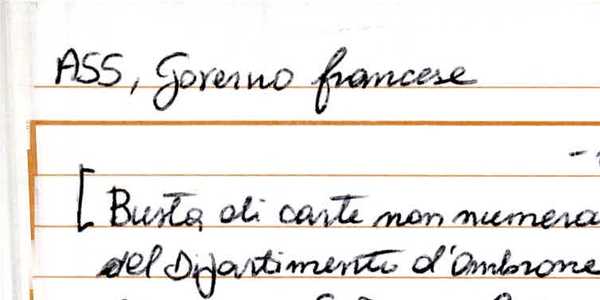 ASS, Governo francese
[Busta di carte non numera
del Dipartimento d'Ombrone